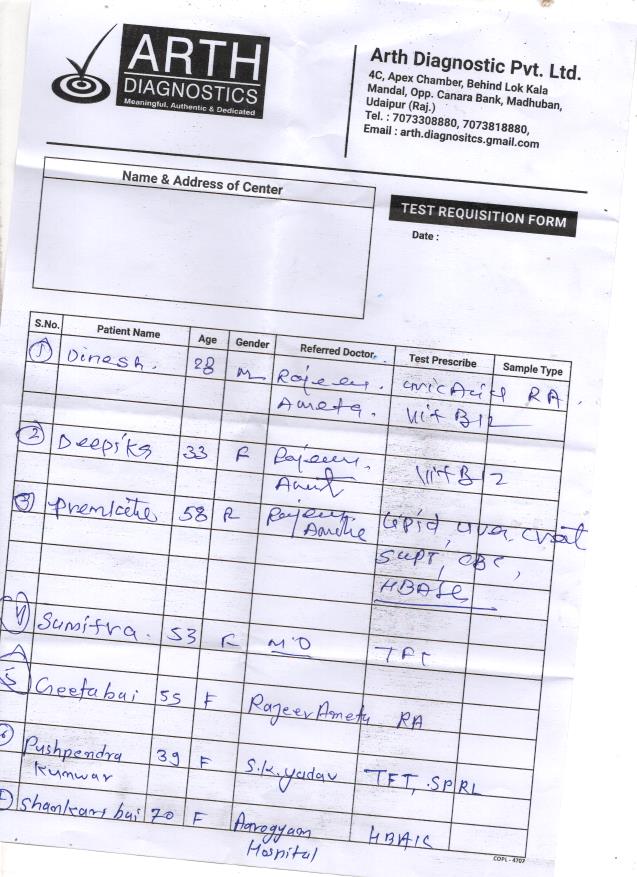 ARTH
DIAGNOSTICS
Meaningful, Authentic & Dedicated
Arth Diagnostic Pvt. Ltd.
4C, Apex Chamber, Behind Lok Kala
Mandal, Opp. Canara Bank, Madhuban,
Udaipur (Raj.)
Tel. : 7073308880, 7073818880,
Email : arth.diagnositcs.gmail.com
Name & Address of Center
TEST REQUISITION FORM
Date :
S.No. Patient Name Age Gender Referred Doctor. Test Prescribe Sample Type
1 Dinesh. 28 M Rajeev. RA.
Ameta. Vit B12
2 Deepika 33 F Rajeev. Vit B12
3 58 F Rajeev Lipid,
SGPT, CBC,
HBA1C
4 Sumitra. 53 F MD TFT
5 Geetabai 55 F Rajeev Ameta RA
6 Pushpendra 39 F S.K. yadav TFT, SPRL
Kunwar
Shankari bai 70 F Aarogyam HBA1C
Hospital
COPL - 4707